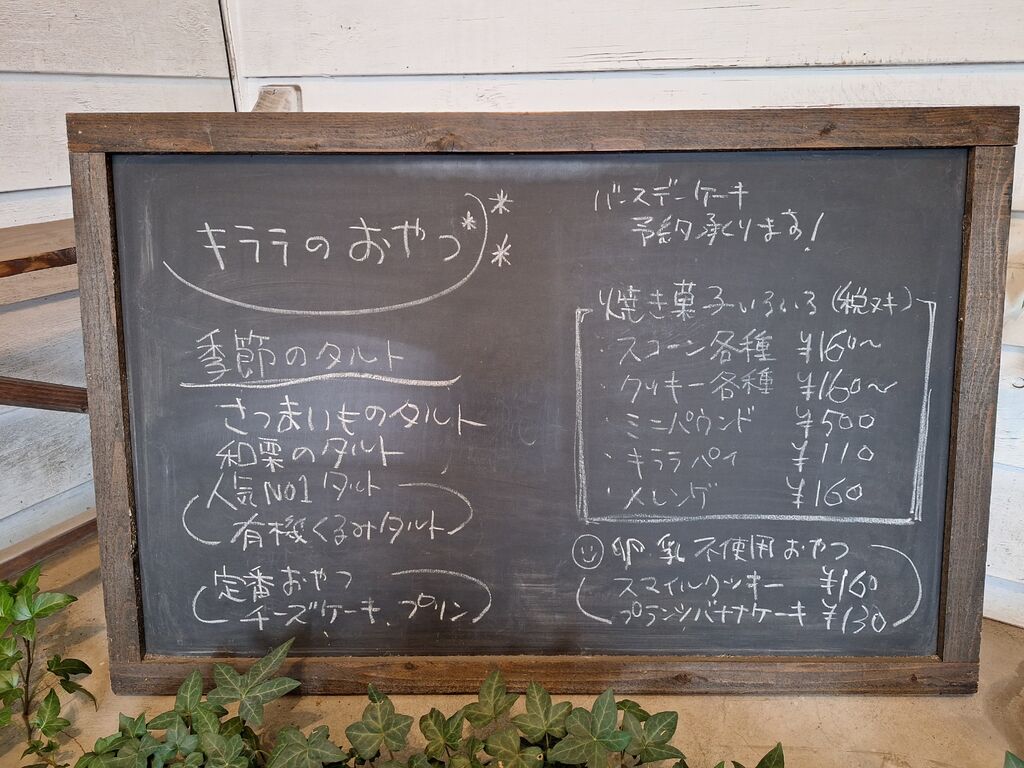 キララのおやつ
季節のタルト
さつまいものタルト
和栗のタルト
人気NO1タルト
有機くるみタルト
定番おやつ
チーズケーキ、プリン
バースデーケーキ
予約承ります!
焼き菓子いろいろ(税ヌキ)
・スコーン各種 ¥160~
・クッキー各種 ¥160~
・ミニパウンド ¥500
・キララパイ ¥110
・メレンゲ ¥160
卵乳不使用おやつ
スマイルクッキー ¥160
プランツバナナケーキ ¥130